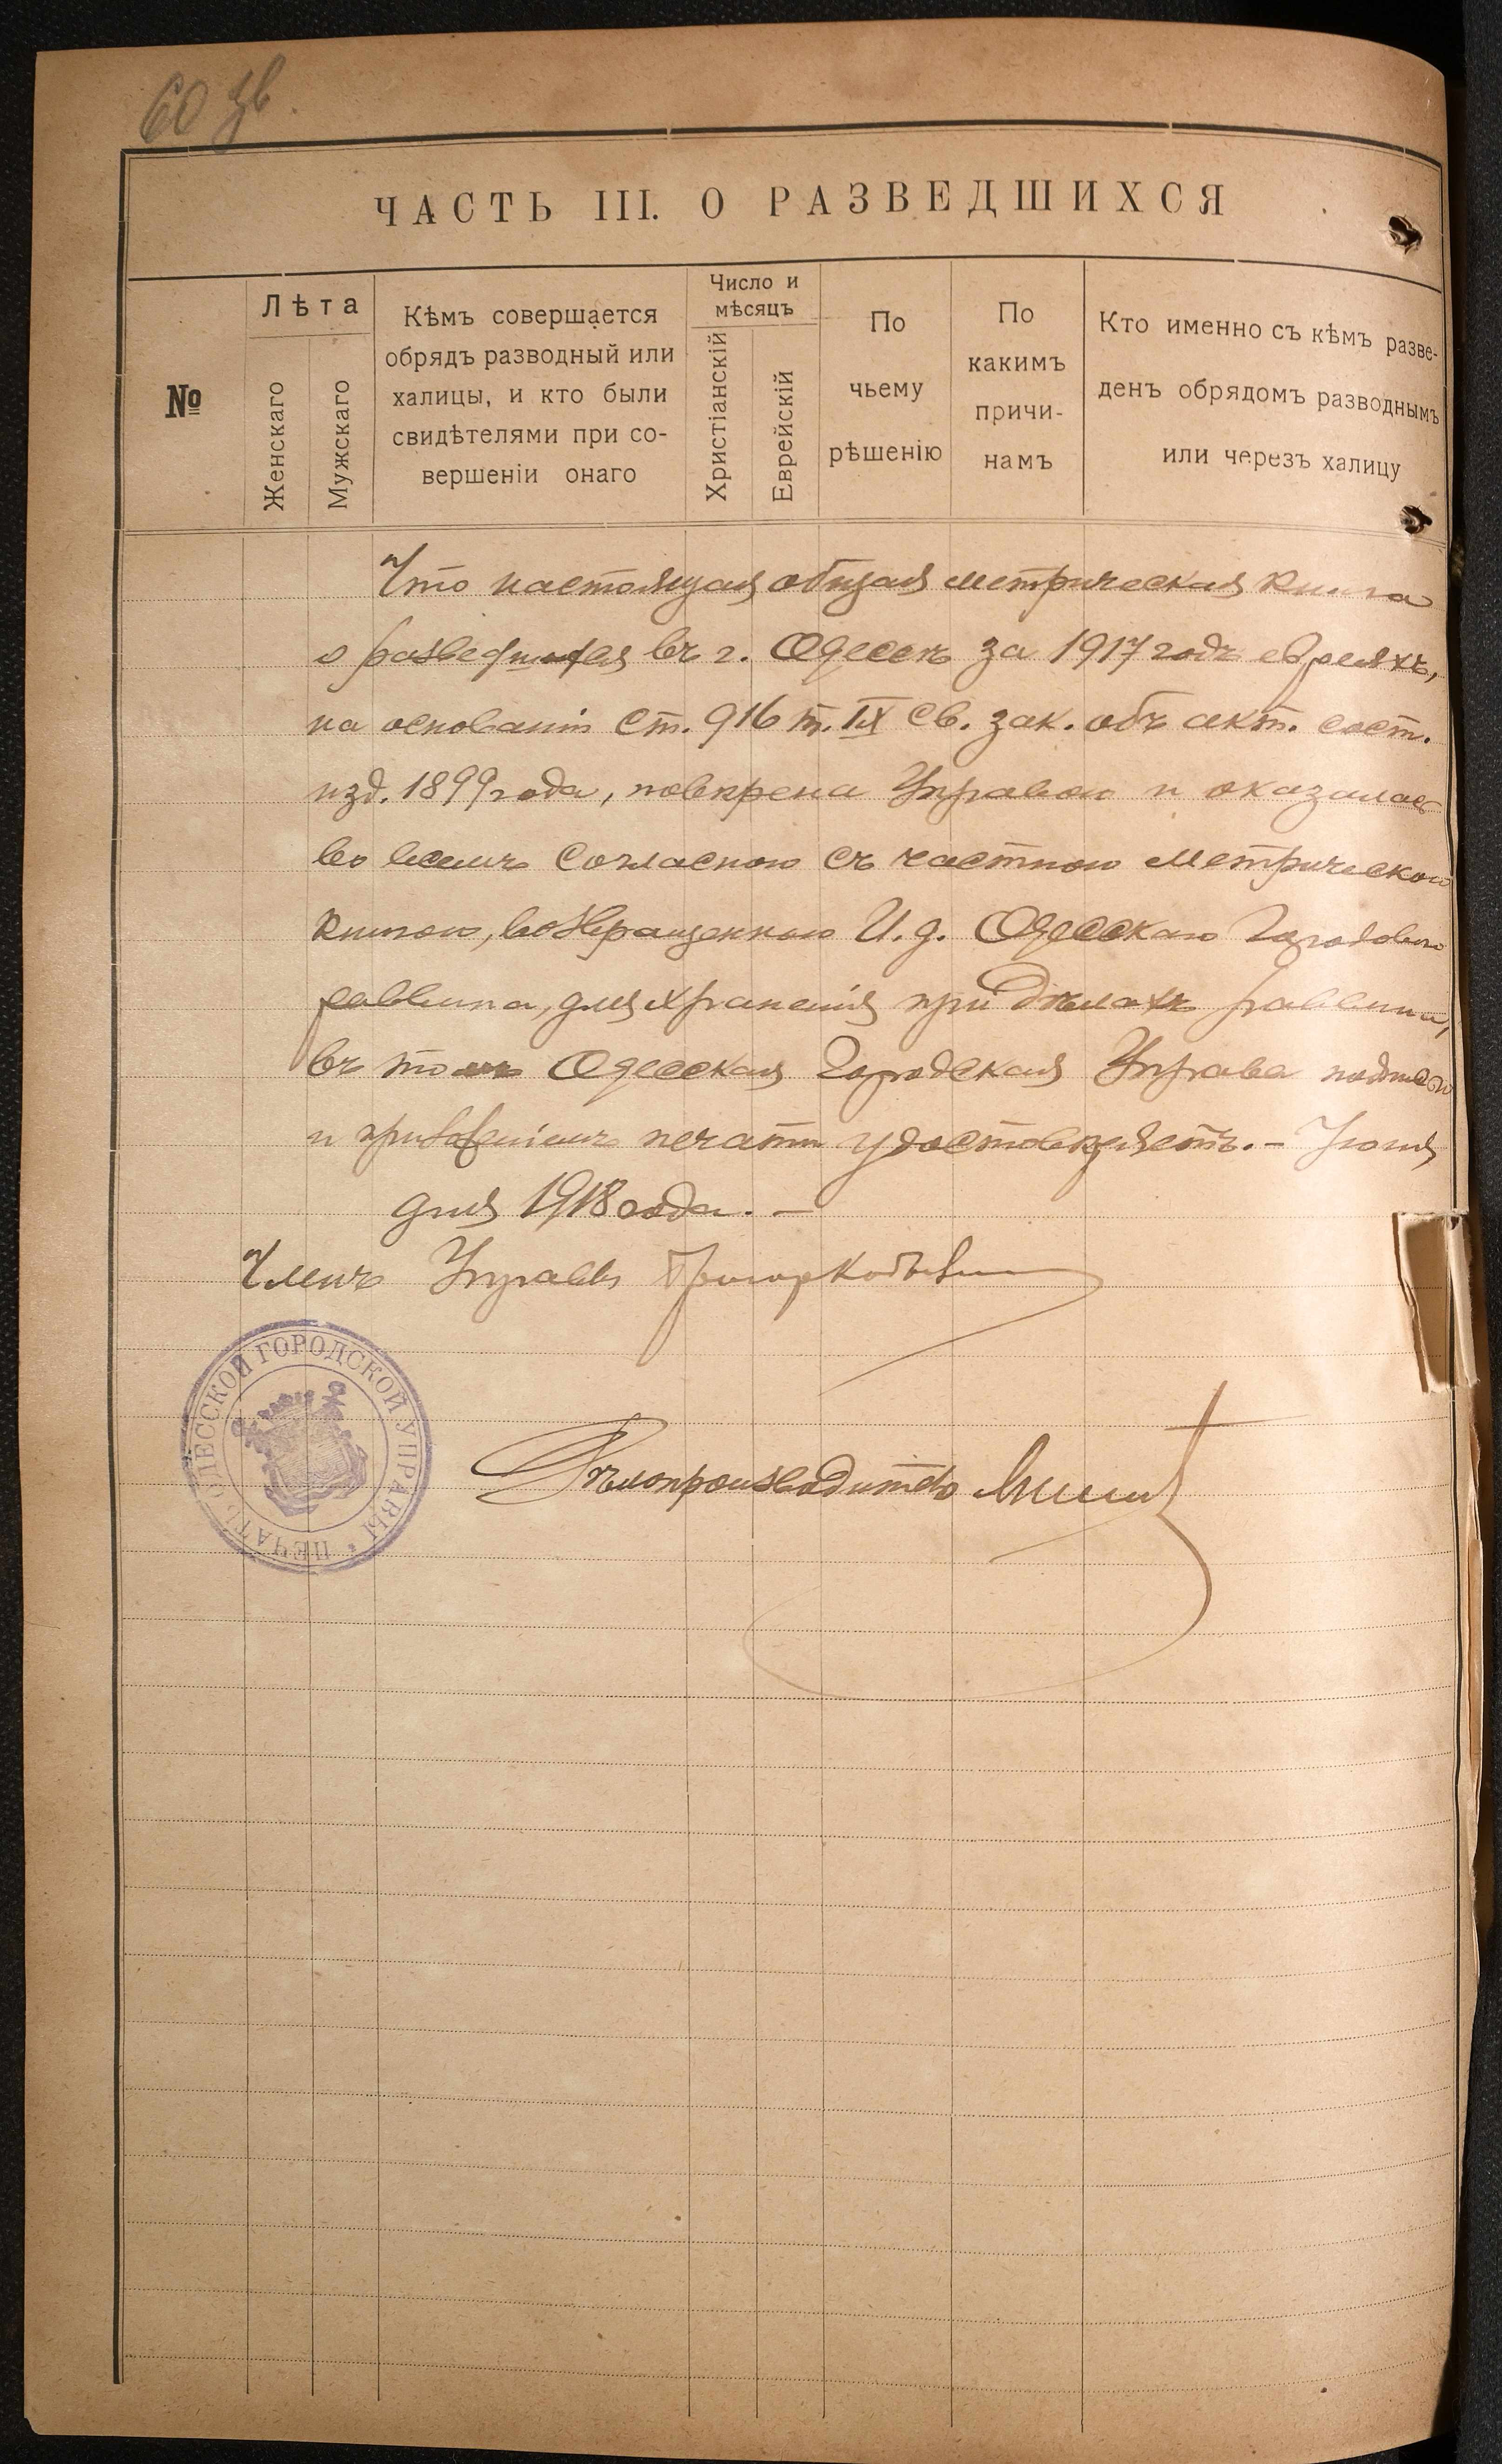 60 зв.
ЧАСТЬ III. О РАЗВЕДШИХСЯ
№
Лѣта
Женскаго
Мужскаго
Кѣмъ совершается
обрядъ разводный или
халицы, и кто были
свидѣтелями при со-
вершеніи онаго
Число и
мѣсяцъ
Христіанскій
Еврейскій
По
чьему
рѣшенію
По
какимъ
причи-
намъ
Кто именно съ кѣмъ разве-
денъ обрядомъ разводнымъ
или черезъ халицу
Что настоящая общая метрическая книга
о разведшихся въ г. Одессѣ за 1917 годъ евреяхъ,
на основаніи ст. 916 т. IX св. зак. объ акт. сост.
изд. 1899 года, повѣрена Управою и оказалась
во всемъ согласною съ частною метрическою
книгою, возвращенною И. д. Одесскаго Городового
раввина, для храненія при дѣлахъ раввина,
въ томъ Одесская Городская Управа подписью
и приложеніемъ печати удостовѣряетъ. – Іюня
дня 1918 года. –
Членъ Управы
ПЕЧАТЬ ОДЕССКОЙ ГОРОДСКОЙ УПРАВЫ
Дѣлопроизводитель